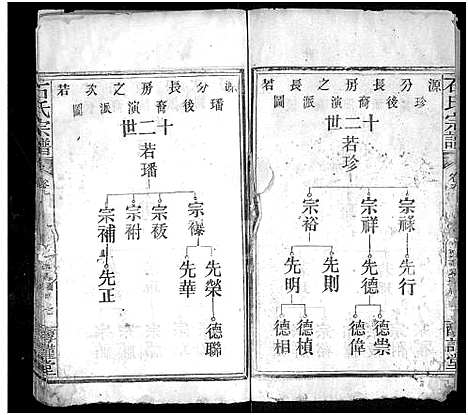 石氏宗譜
源分長房之次若
珍後裔演派圖
十二世
若珍
宗祿
宗祥
宗裕
先行
先德
先則
先明
德崇
德偉
德楨
德相
源分長房之次若
璠後裔演派圖
十二世
若璠
宗祿
宗祔
宗補
先榮
先華
先正
德聯
石氏宗譜